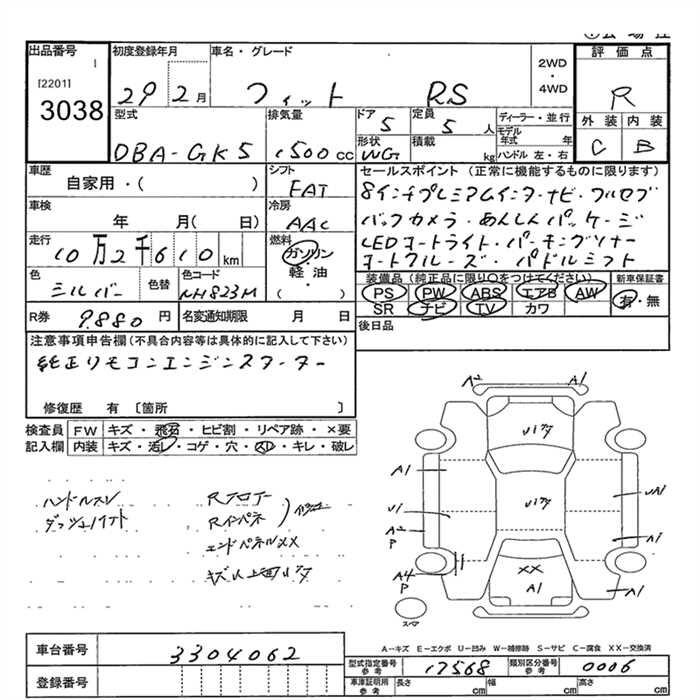 出品番号
[2201]
3038
初度登録年月
29 2月
車名・グレード
フィット RS
2WD
・
4WD
評価点
R
外装 内装
C B
型式
DBA-GK5
排気量
1500cc
ドア
5
定員
5人
形状
WG
積載
kg
ディーラー・並行
モデル年式 年
ハンドル 左・右
車歴
自家用・( )
シフト
FAT
車検
年 月( 日)
冷房
AAC
走行
10万2千610km
燃料
ガソリン
軽油
・( )
色
シルバー
色替
色コード
NH823M
R券 9.880円
名変通知期限 月 日
セールスポイント (正常に機能するものに限ります)
8インチプレミアムインターナビ・フルセグ
バックカメラ・あんしんパッケージ
LEDオートライト・パーキングソナー
オートクルーズ・パドルシフト
装備品(純正品に限り○をつけてください)
PS PW ABS エアB AW
SR ナビ TV カワ
新車保証書
有・無
後日品
注意事項申告欄(不具合内容等は具体的に記入して下さい)
純正リモコンエンジンスターター
修復歴 有 〔箇所 〕
検査員記入欄
FW キズ・飛石・ヒビ割・リペア跡・×要
内装 キズ・汚レ・コゲ・穴・スレ・キレ・破レ
ハンドルスレ
Rフロアー
Rインパネ
エンドパネルXX
A2 A1
A1
A2
P
A4
P
UA1
A1
A1
XX
A1
スペア
A-キズ E-エクボ U-凹み W-補修跡 S-サビ C-腐食 XX-交換済
車台番号 3304062
登録番号
型式指定番号 参考 17568
類別区分番号 参考 0006
車庫証明用 参考 長さ cm 幅 cm 高さ cm